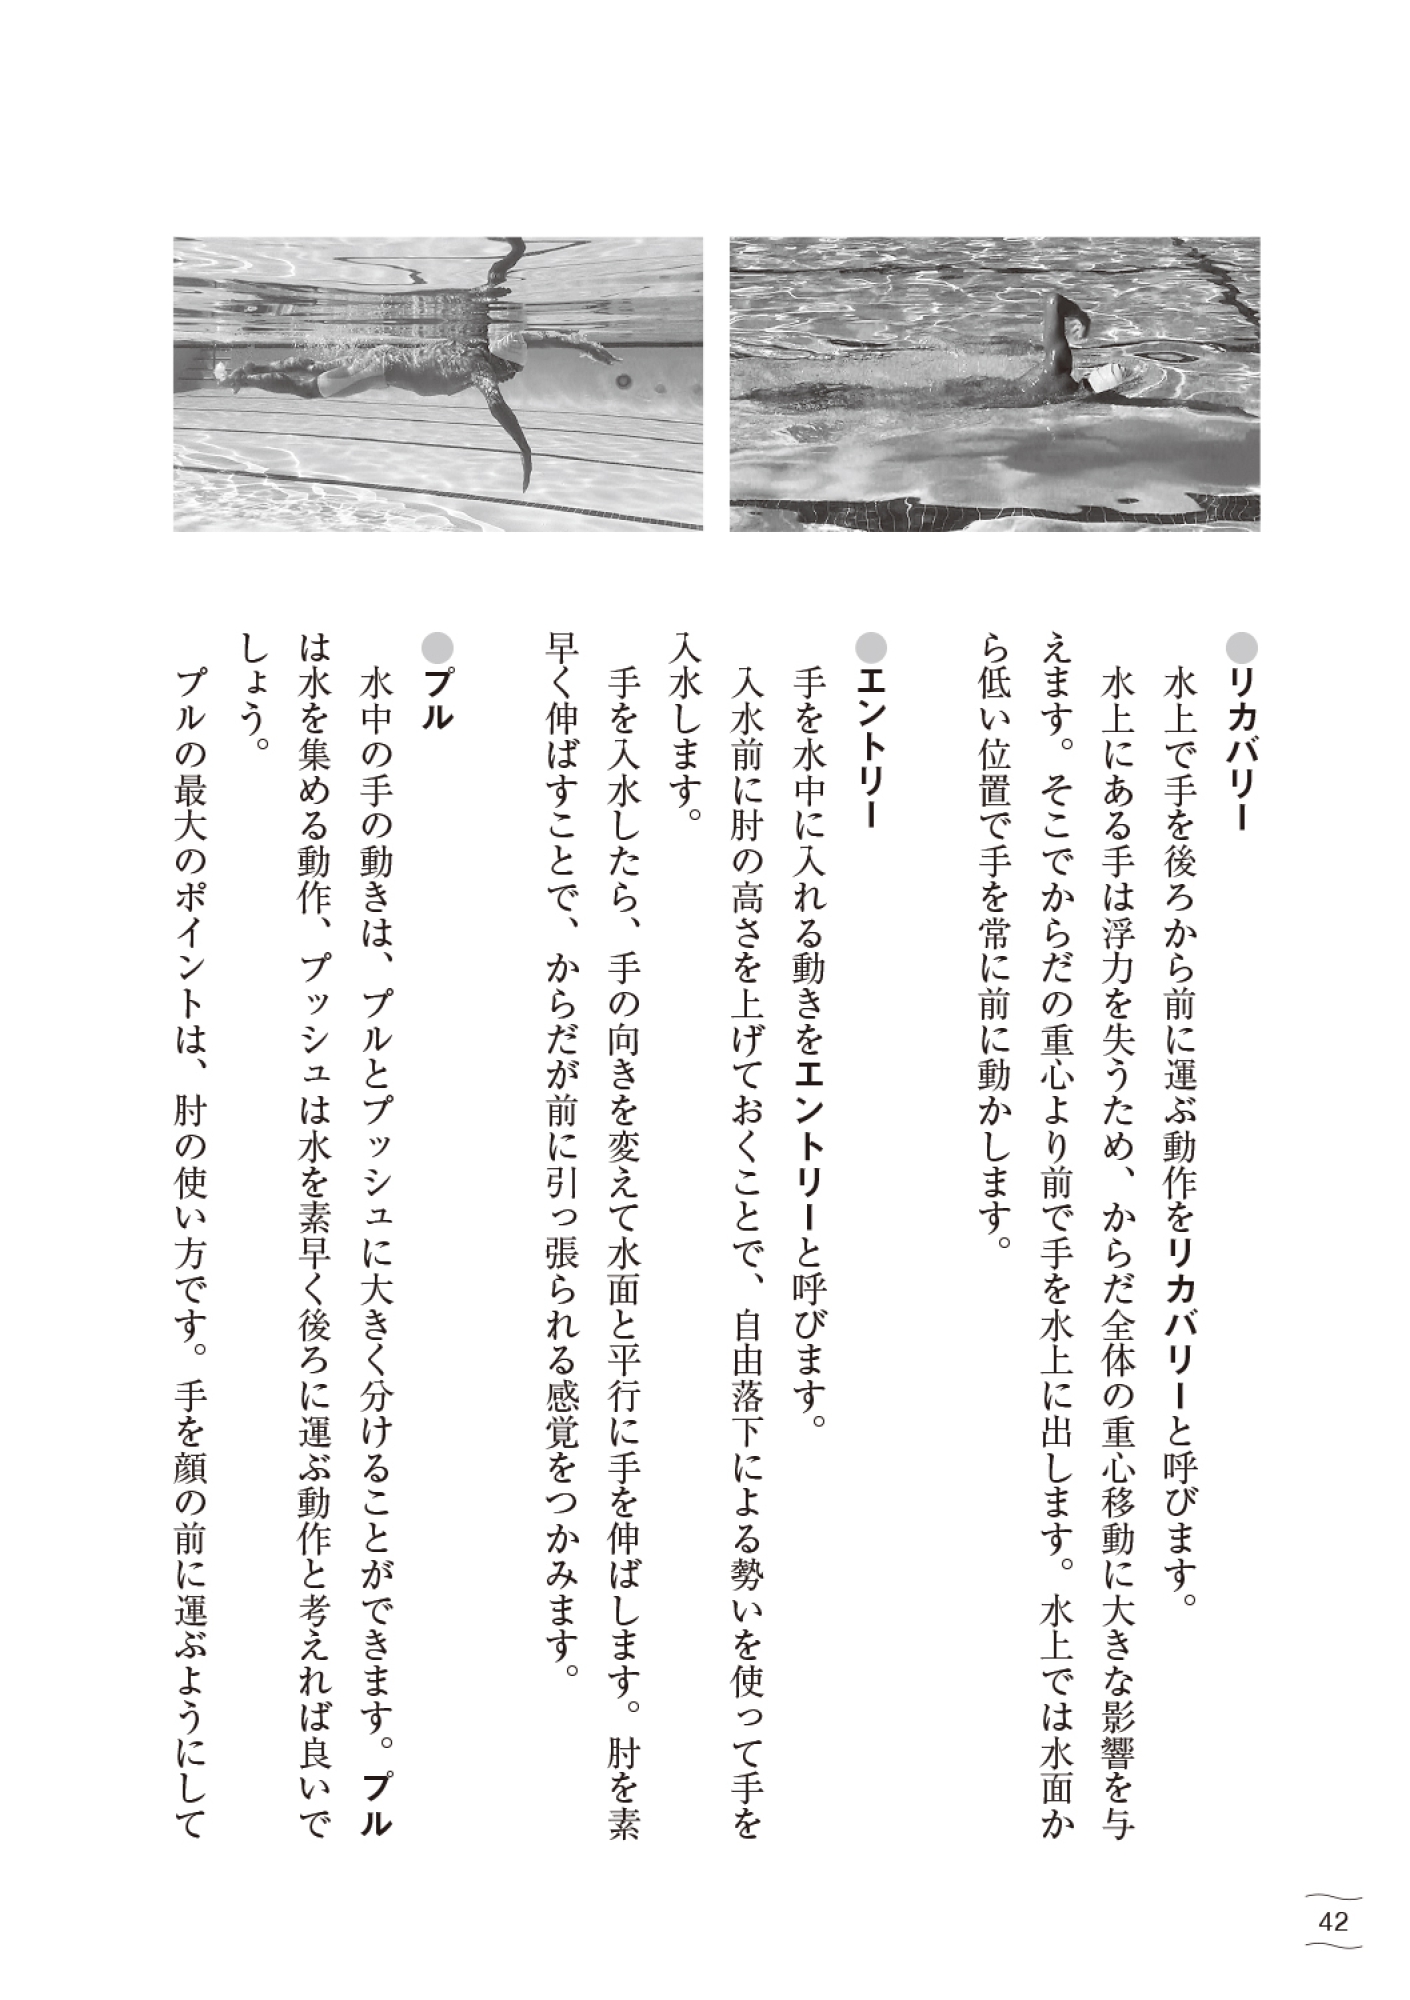 ●リカバリー
水上で手を後ろから前に運ぶ動作をリカバリーと呼びます。
水上にある手は浮力を失うため、からだ全体の重心移動に大きな影響を与
えます。そこでからだの重心より前で手を水上に出します。水上では水面か
ら低い位置で手を常に前に動かします。
●エントリー
手を水中に入れる動きをエントリーと呼びます。
入水前に肘の高さを上げておくことで、自由落下による勢いを使って手を
入水します。
手を入水したら、手の向きを変えて水面と平行に手を伸ばします。肘を素
早く伸ばすことで、からだが前に引っ張られる感覚をつかみます。
●プル
水中の手の動きは、プルとプッシュに大きく分けることができます。プル
は水を集める動作、プッシュは水を素早く後ろに運ぶ動作と考えれば良いで
しょう。
プルの最大のポイントは、肘の使い方です。手を顔の前に運ぶようにして
42